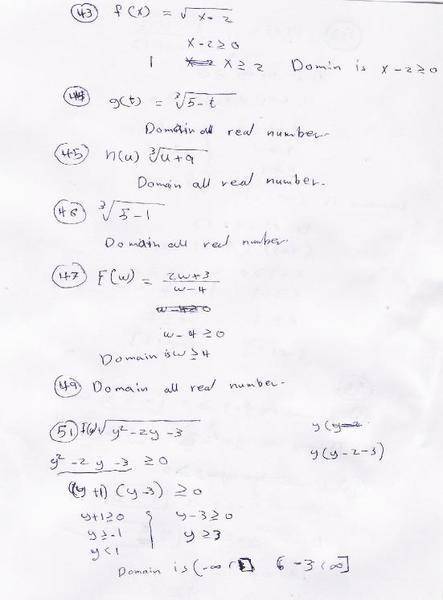 43 f(x) = √x-2
x-2≥0
x≥2 Domin is x-2≥0
44 g(t) = ∛5-t
Domain all real number.
45 h(u) ∛u+9
Domain all real number.
46 ∛5-1
Domain all real number
47 F(w) = 2w+3 / w-4
w-4≥0
w-4≥0
Domain is w≥4
49 Domain all real number.
51 f(y) √y²-2y-3 y(y-2
y²-2y-3 ≥0 y(y-2-3)
(y+1)(y-3) ≥0
y+1≥0 y-3≥0
y≥-1 y≥3
y<1
Domain is (-∞